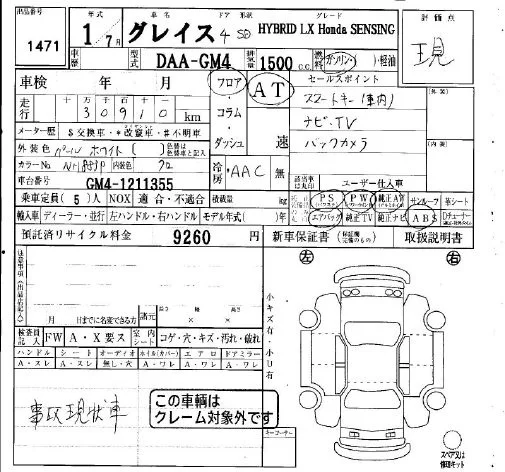 出品番号 1471
年式 1/7月
車名 グレイス
ドア 形状 4 SD
グレード HYBRID LX Honda SENSING
評価点 現
型式 DAA-GM4
排気量 1500 cc
燃料 ガソリン・軽油
車検 年 月
フロア
AT
セールスポイント
走行 30910 km
コラム
スマートキー(車内)
ナビ・TV
バックカメラ
メーター歴 $交換車・*改竄車・#不明車
ダッシュ
速
外装色 パールホワイト ( )
カラーNo. NH883P 内装色 クロ
冷房 AAC 無
車台番号 GM4-1211355
ユーザー仕入車
乗車定員 (5)人 NOX 適合・不適合 積載量 kg
PS PW 純正AW サンルーフ 革シート
輸入車 ディーラー・並行 左ハンドル・右ハンドル モデル年式( )年
エアバック 純正TV 純正ナビ ABS
預託済リサイクル料金 9260 円
新車保証書 取扱説明書
左 右
月 日までに名変できる方
諸元
検査員記入 FW A・X要ス 室内シート コゲ・穴・キズ・汚れ・破れ
ハンドル シート オーディオ ホイル(カバー) エアロ ドアミラー
A・スレ A・スレ 無し・穴 A・ワレ A・ワレ A・ワレ
小キズ有・小U有
事故現状車
この車両はクレーム対象外です
キーコーナー
スペア又は修理キット